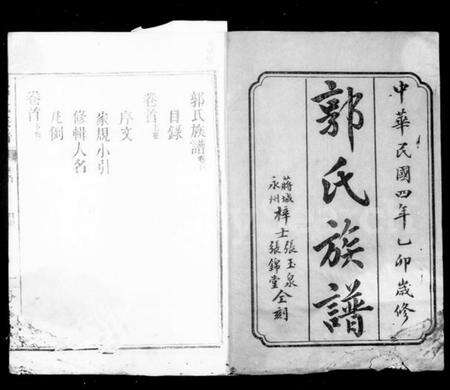 中華民國四年乙卯歲修
郭氏族譜
蔣城 張玉泉
梓士 仝刻
永州 張錦堂
郭氏族譜
目錄
卷首
序文
家規小引
修輯人名
凡例
卷首